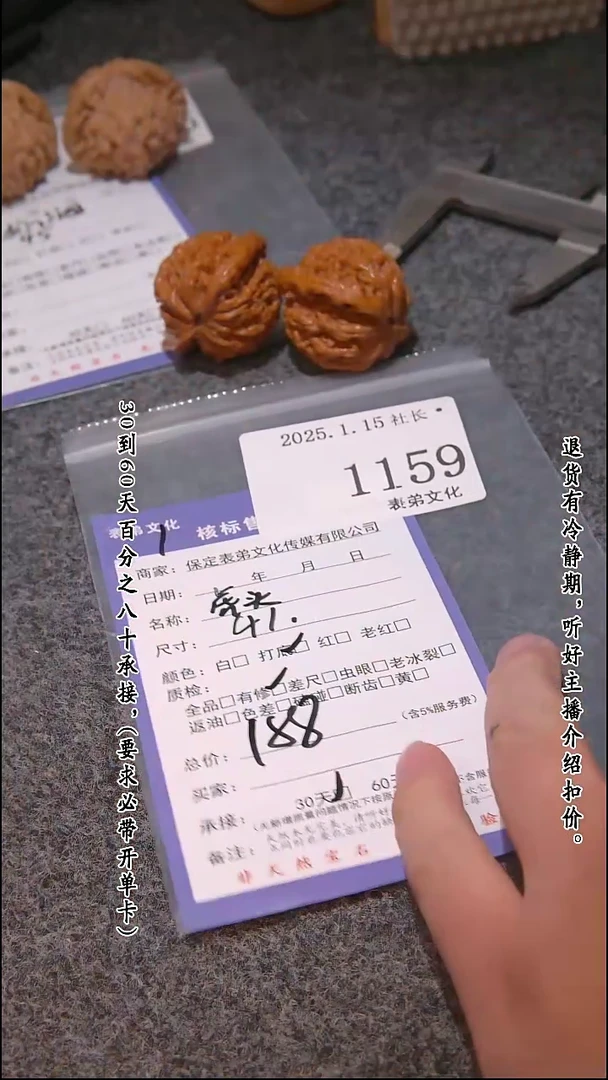 2025.1.15 社长·
1159
表弟文化
表弟文化 核标售
商家：保定表弟文化传媒有限公司
日期： 年 月 日
名称：
尺寸：41.
颜色：白□ 打底□ 红□ 老红□
质检：
全品□有修□差尺□虫眼□老冰裂□
返油□色差□ 断齿□黄□
总价：188 （含5%服务费）
买家：
承接：30天 60天
备注：
非天然宝石
验
30到60天百分之八十承接，（要求必带开单卡）
退货有冷静期，听好主播介绍扣价。